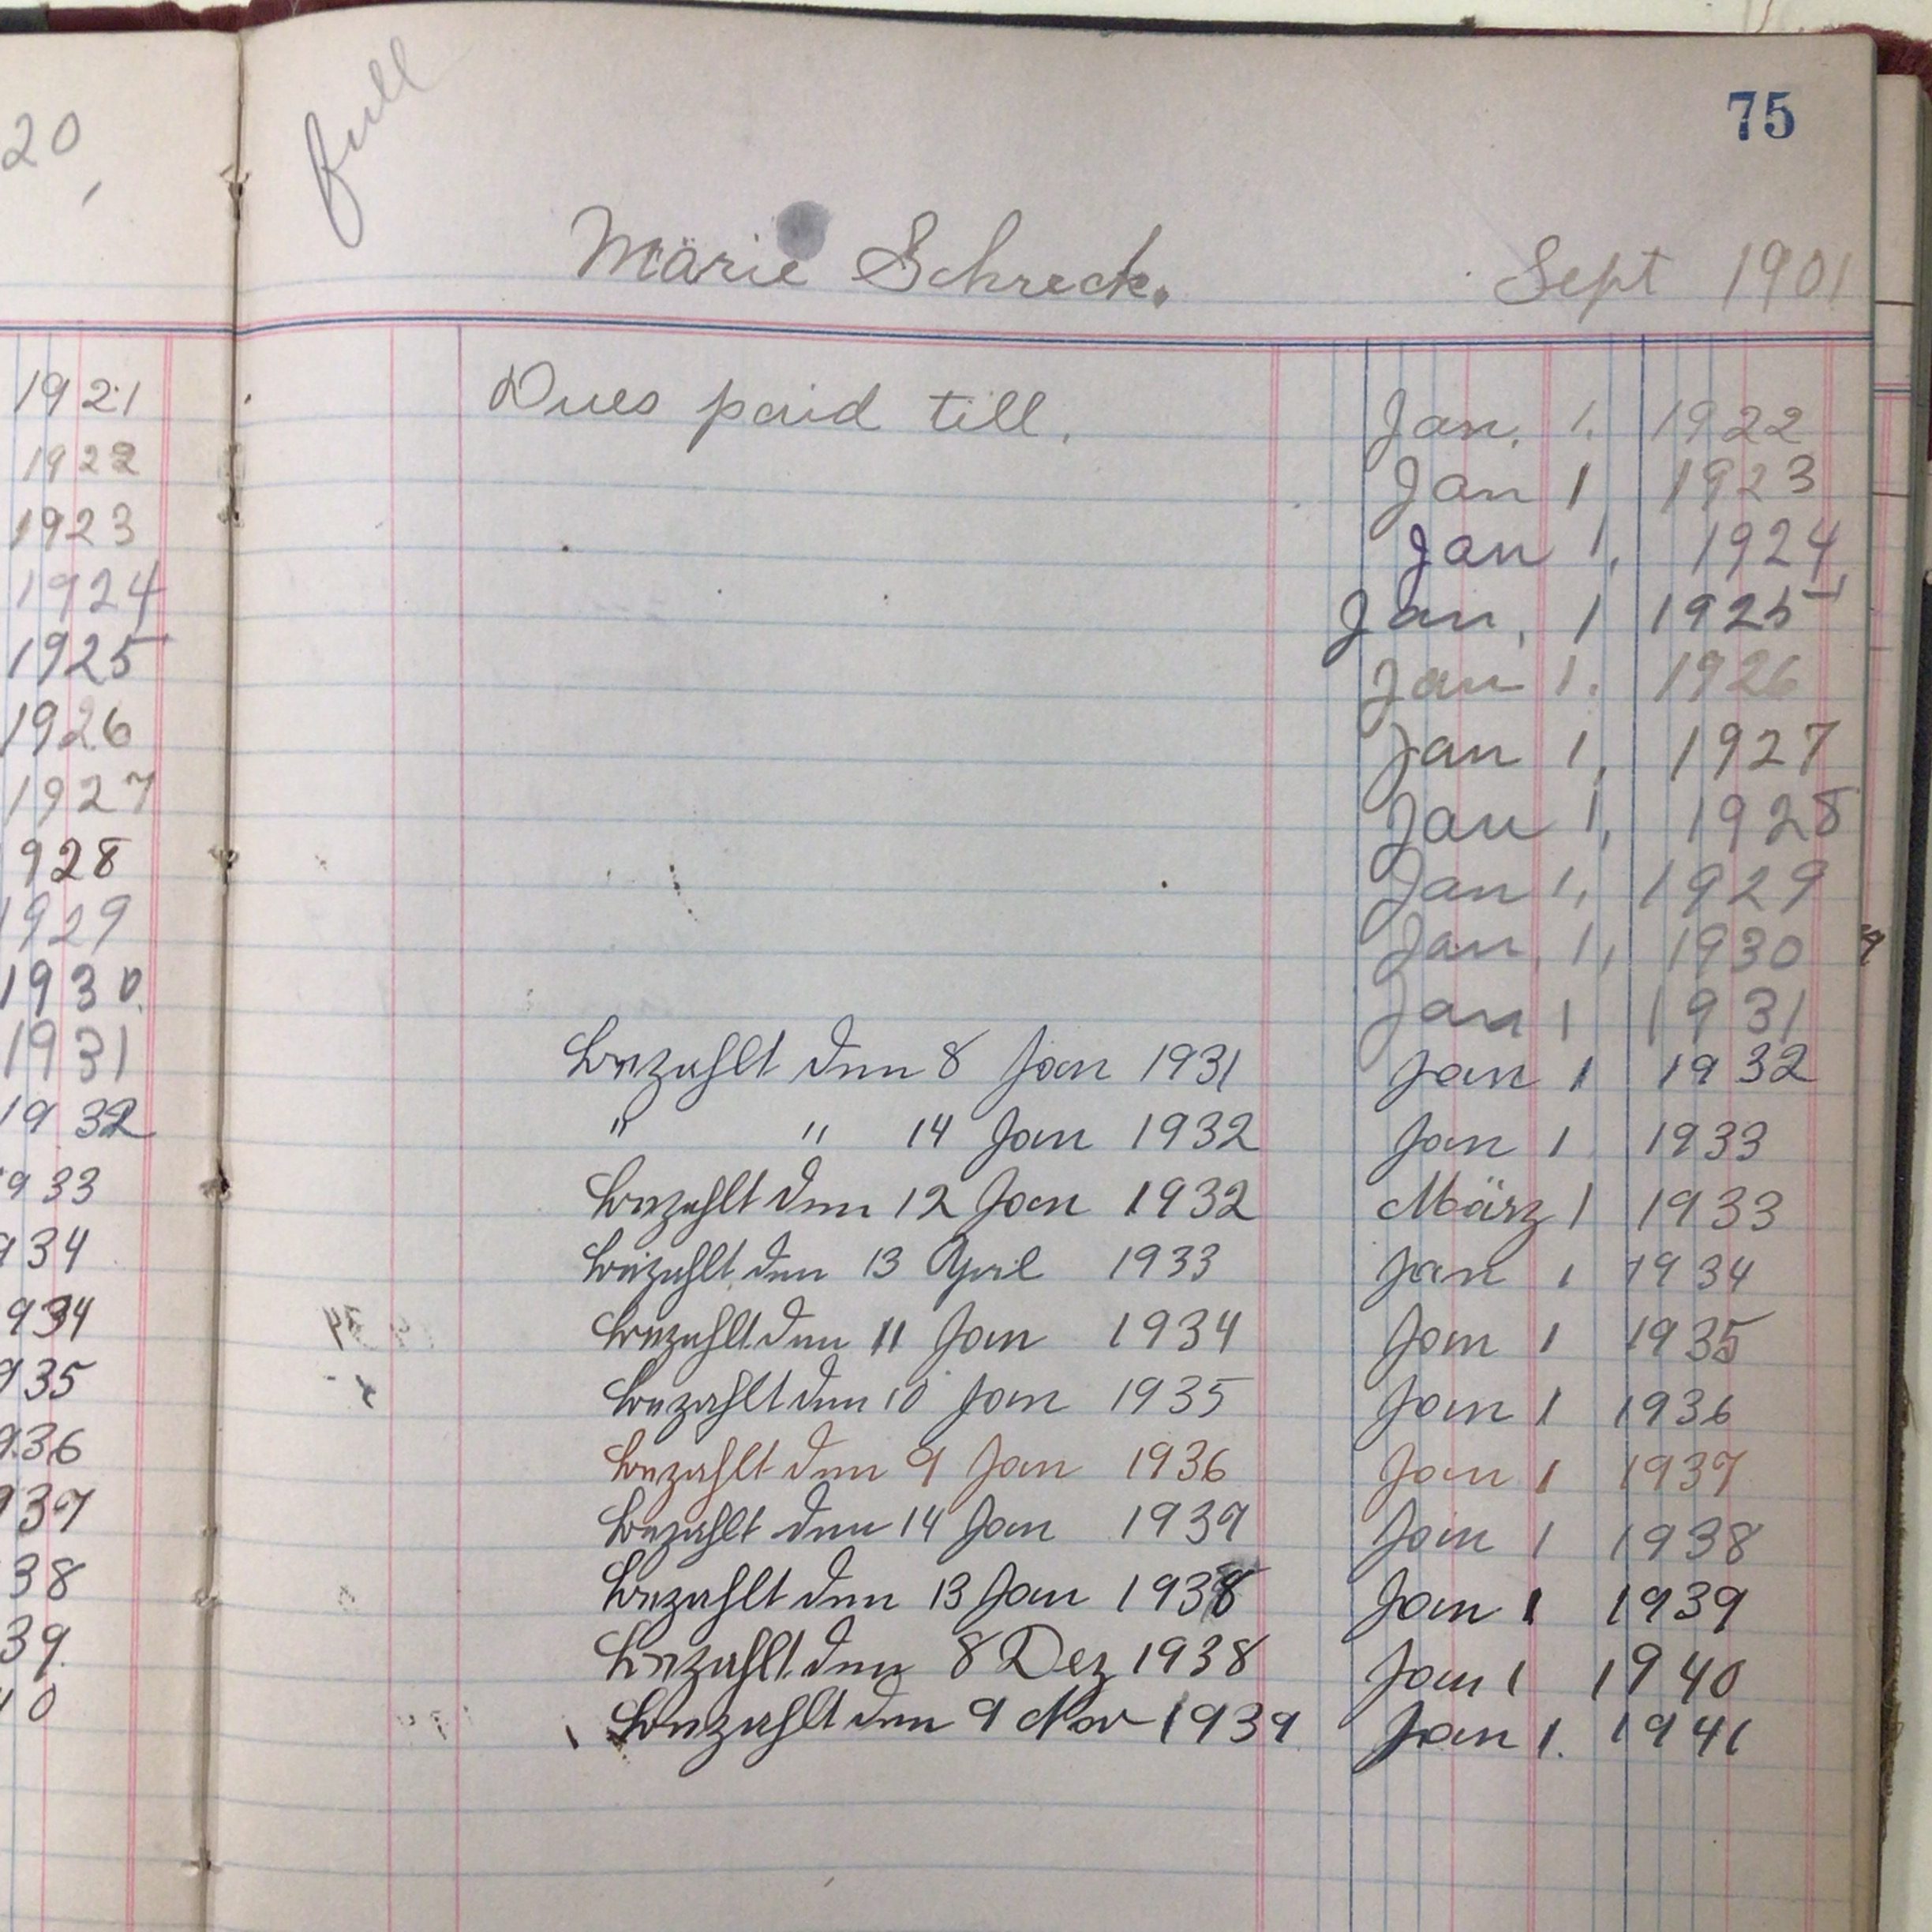 20,
1921
1922
1923
1924
1925
1926
1927
928
1929
1930.
1931
1932
933
934
934
935
936
937
38
39.
40
full
75
Märie Schreck. Sept 1901
Dues paid till. Jan. 1. 1922
Jan 1 1923
Jan 1, 1924
Jan, 1 1925
Jan 1. 1926
Jan 1, 1927
Jan 1, 1928
Jan 1, 1929
Jan, 1, 1930
Jan 1 1931
Bezahlt den 8 Jan 1931 Jan 1 1932
" " 14 Jan 1932 Jan 1 1933
Bezahlt den 12 Jan 1932 März 1 1933
Bezahlt den 13 April 1933 Jan 1 1934
Bezahlt den 11 Jan 1934 Jan 1 1935
Bezahlt den 10 Jan 1935 Jan 1 1936
Bezahlt den 9 Jan 1936 Jan 1 1937
Bezahlt den 14 Jan 1937 Jan 1 1938
Bezahlt den 13 Jan 1938 Jan 1 1939
Bezahlt den 8 Dez 1938 Jan 1 1940
Bezahlt den 9 Nov 1939 Jan 1. 1941